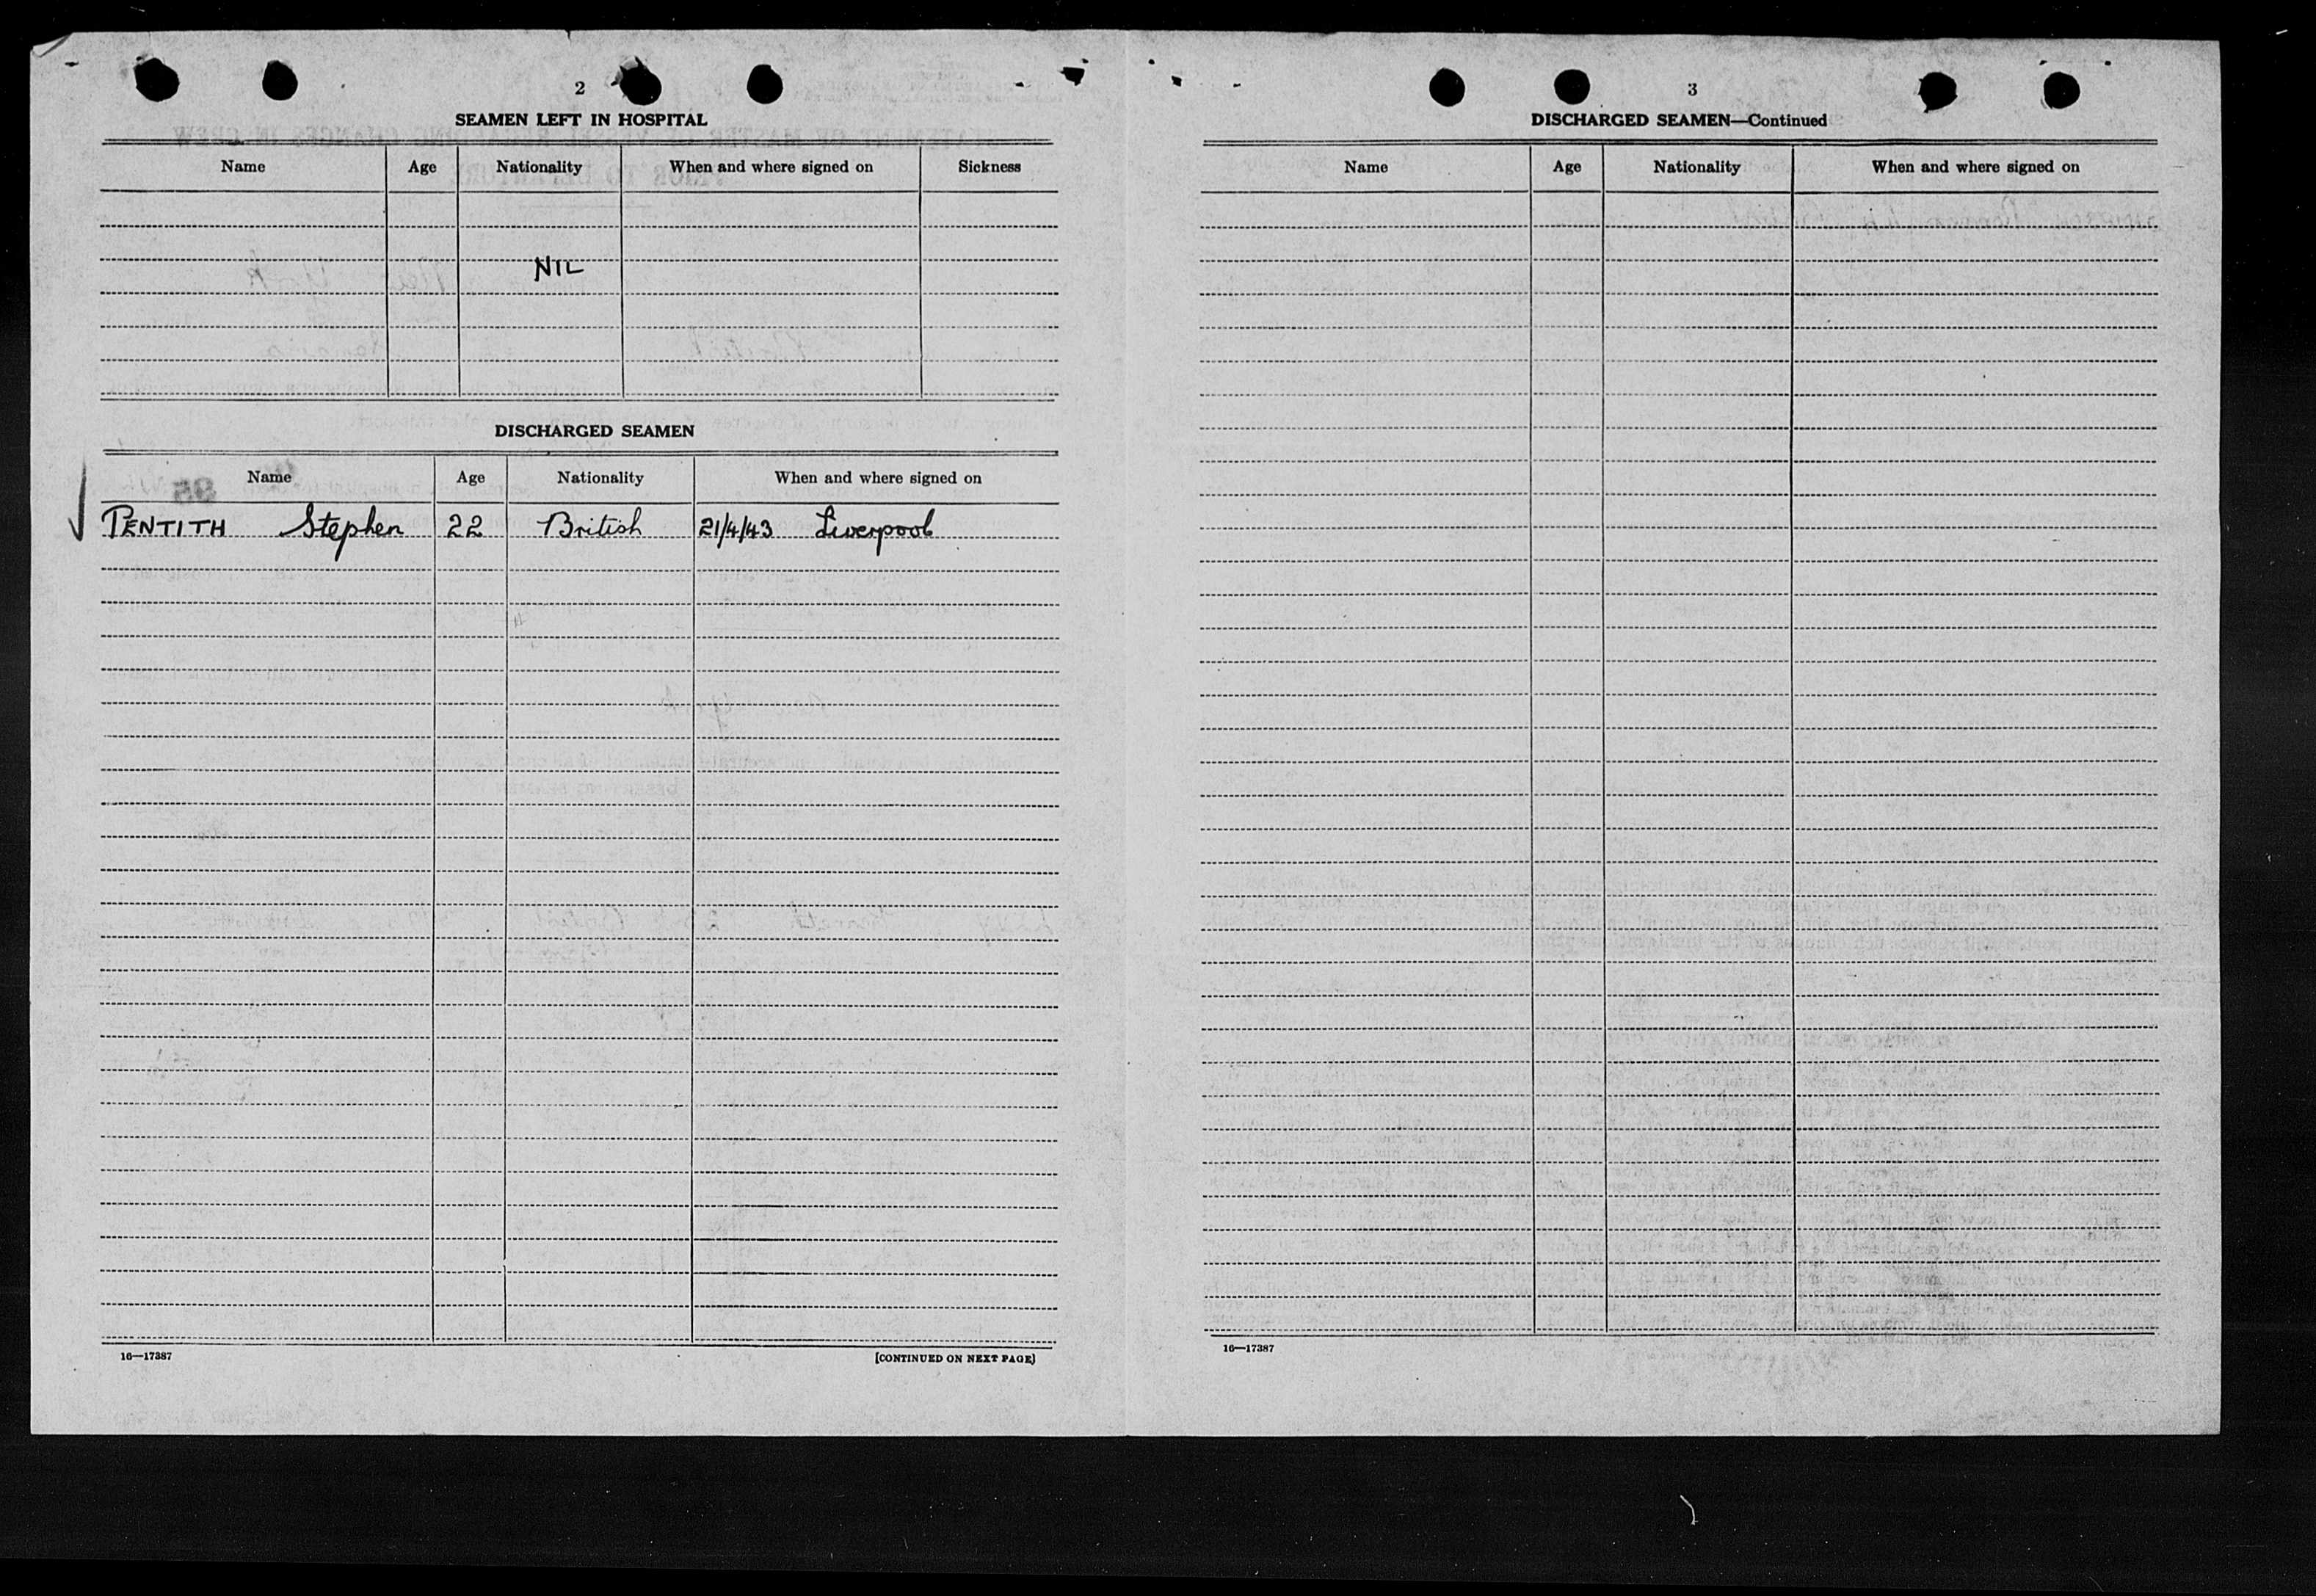 2
SEAMEN LEFT IN HOSPITAL
Name Age Nationality When and where signed on Sickness
NIL
DISCHARGED SEAMEN
Name Age Nationality When and where signed on
PENTITH Stephen 22 British 21/4/43 Liverpool
16—17387 [CONTINUED ON NEXT PAGE]
3
DISCHARGED SEAMEN—Continued
Name Age Nationality When and where signed on
16—17387